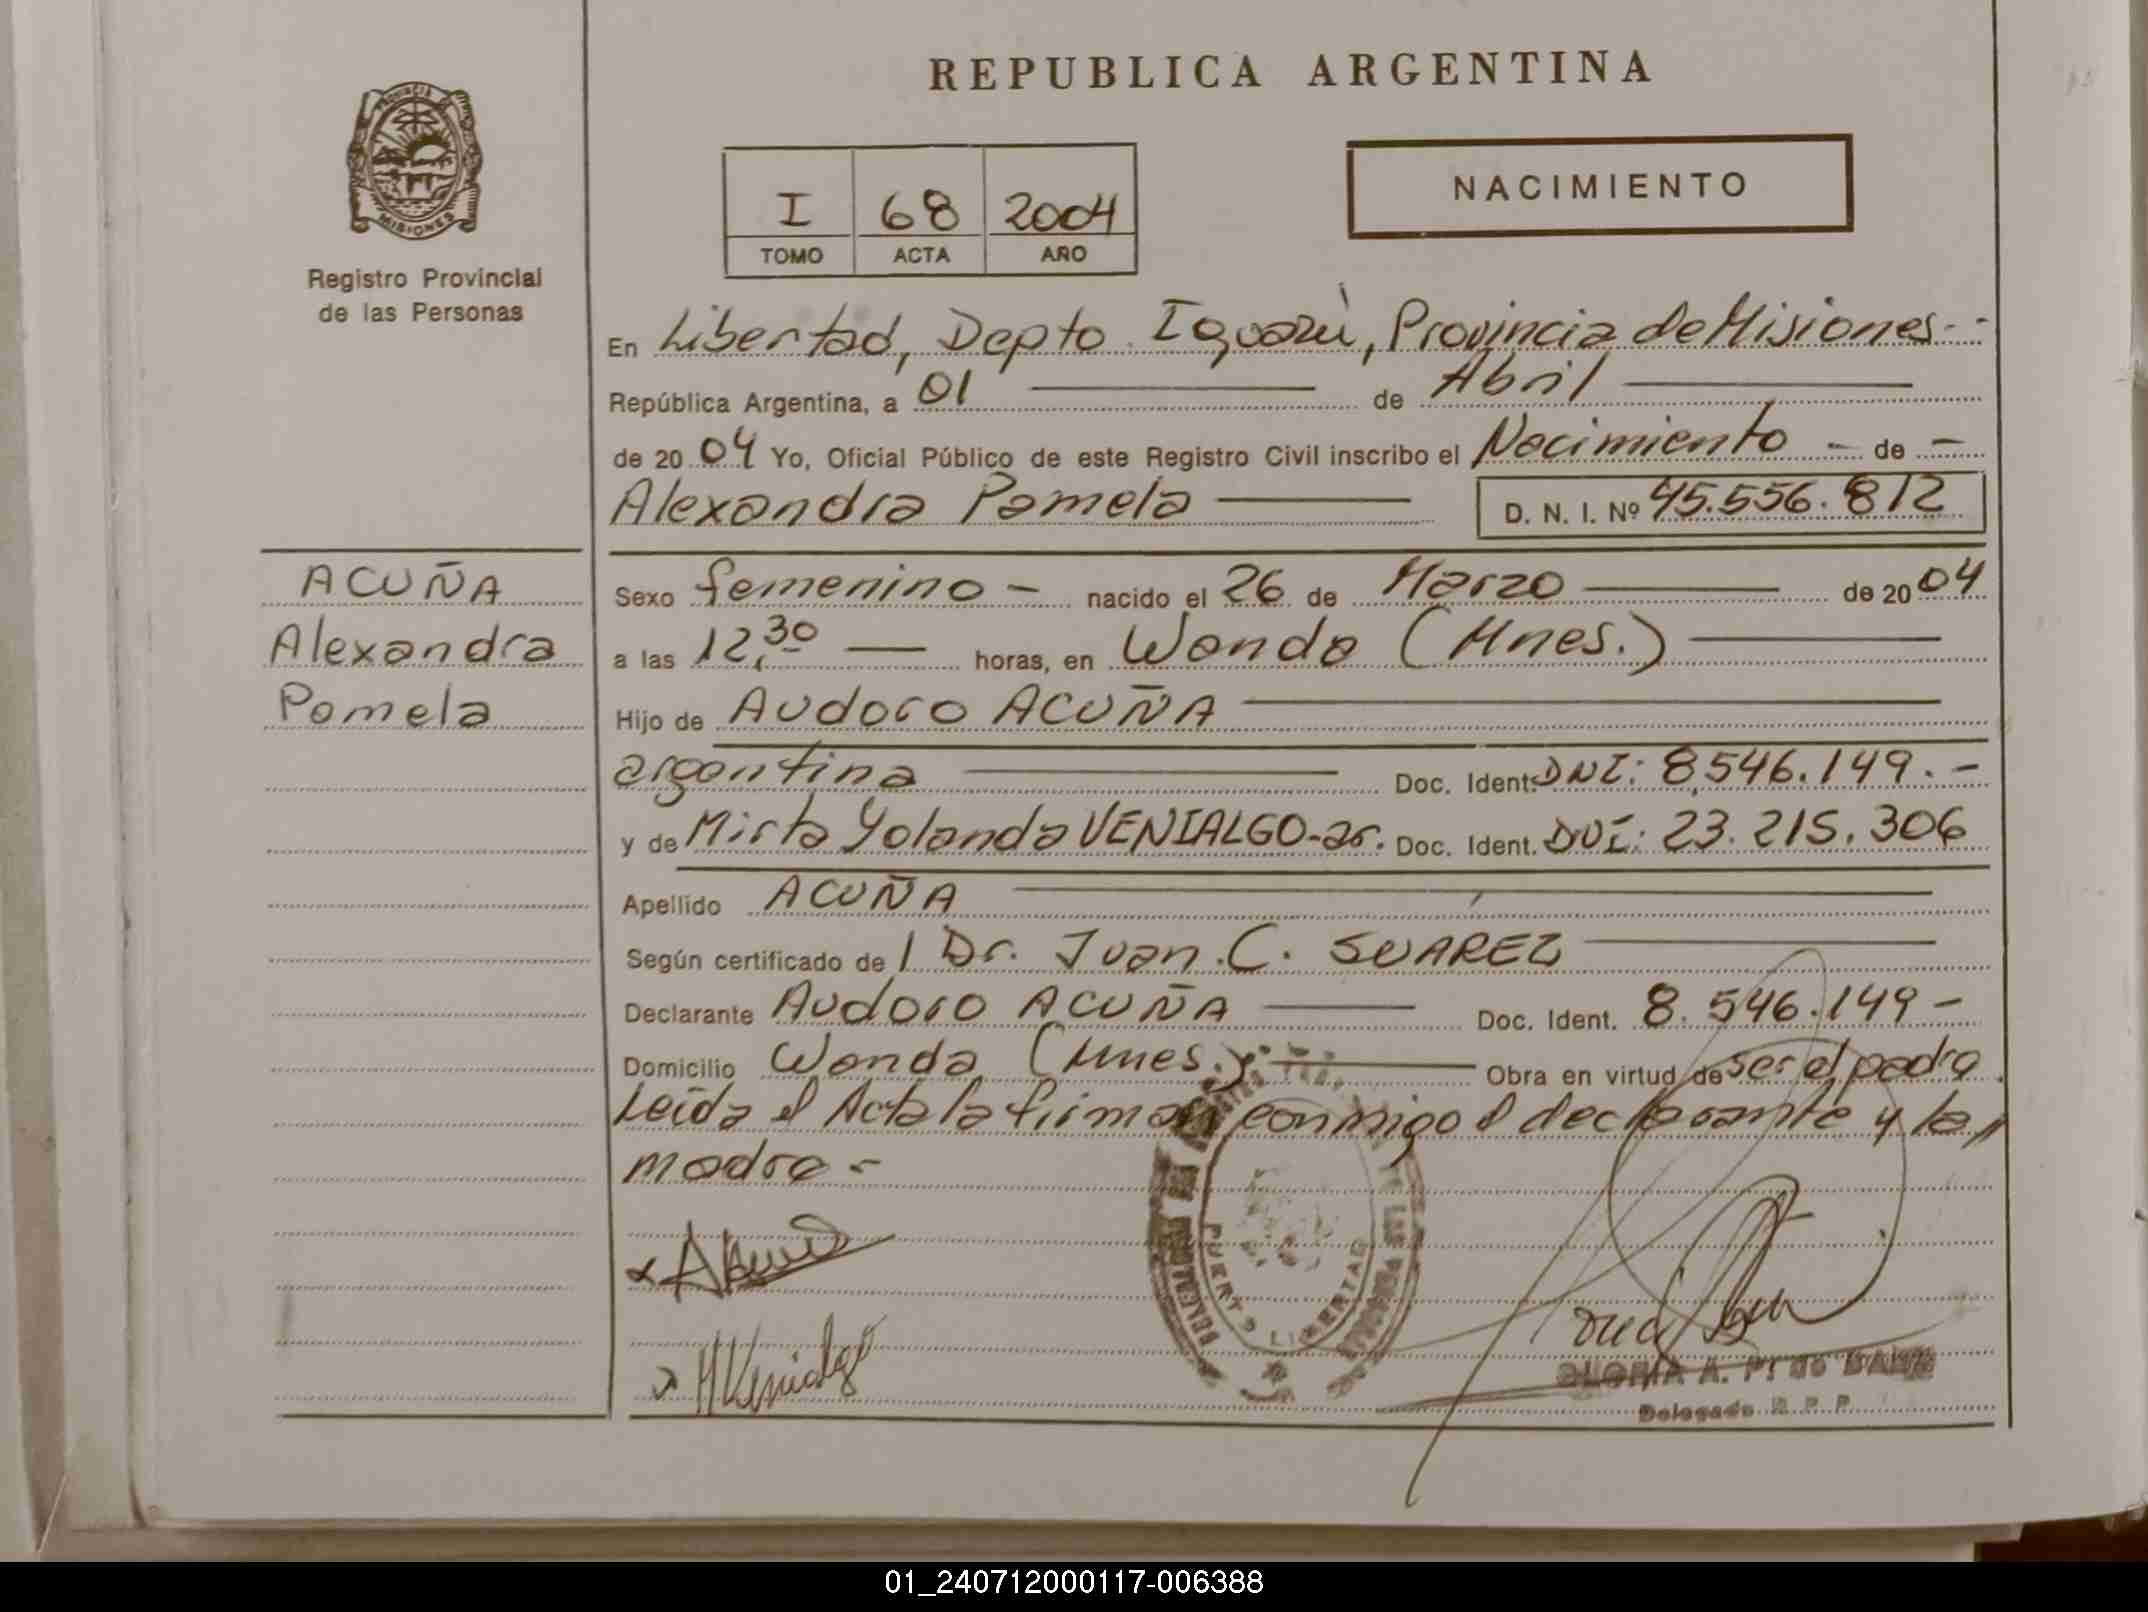 REPUBLICA ARGENTINA
PROVINCIA DE
MISIONES
Registro Provincial
de las Personas
I 68 2004
TOMO ACTA AÑO
NACIMIENTO
En Libertad, Depto Iguazú, Provincia de Misiones.-
República Argentina, a 01 de Abril
de 2004 Yo, Oficial Público de este Registro Civil inscribo el Nacimiento - de -
Alexandra Pamela D. N. I. Nº 45.556.812
ACUÑA
Alexandra
Pamela
Sexo femenino - nacido el 26 de Marzo de 2004
a las 12,30 horas, en Wanda (Mnes.)
Hijo de Audoro ACUÑA
argentina Doc. Ident. DNI: 8.546.149.-
y de Mirta Yolanda VENIALGO-ar. Doc. Ident. DNI: 23.215.306
Apellido ACUÑA
Según certificado de l Dr. Juan C. SUAREZ
Declarante Audoro ACUÑA Doc. Ident. 8.546.149-
Domicilio Wanda (Mnes.) Obra en virtud de ser el padre
Leída el Acta la firman conmigo el declarante y la
madre-
PUERTO LIBERTAD
M Venialgo
GLORIA A. P. de
Delegada R. P. P.
01_240712000117-006388